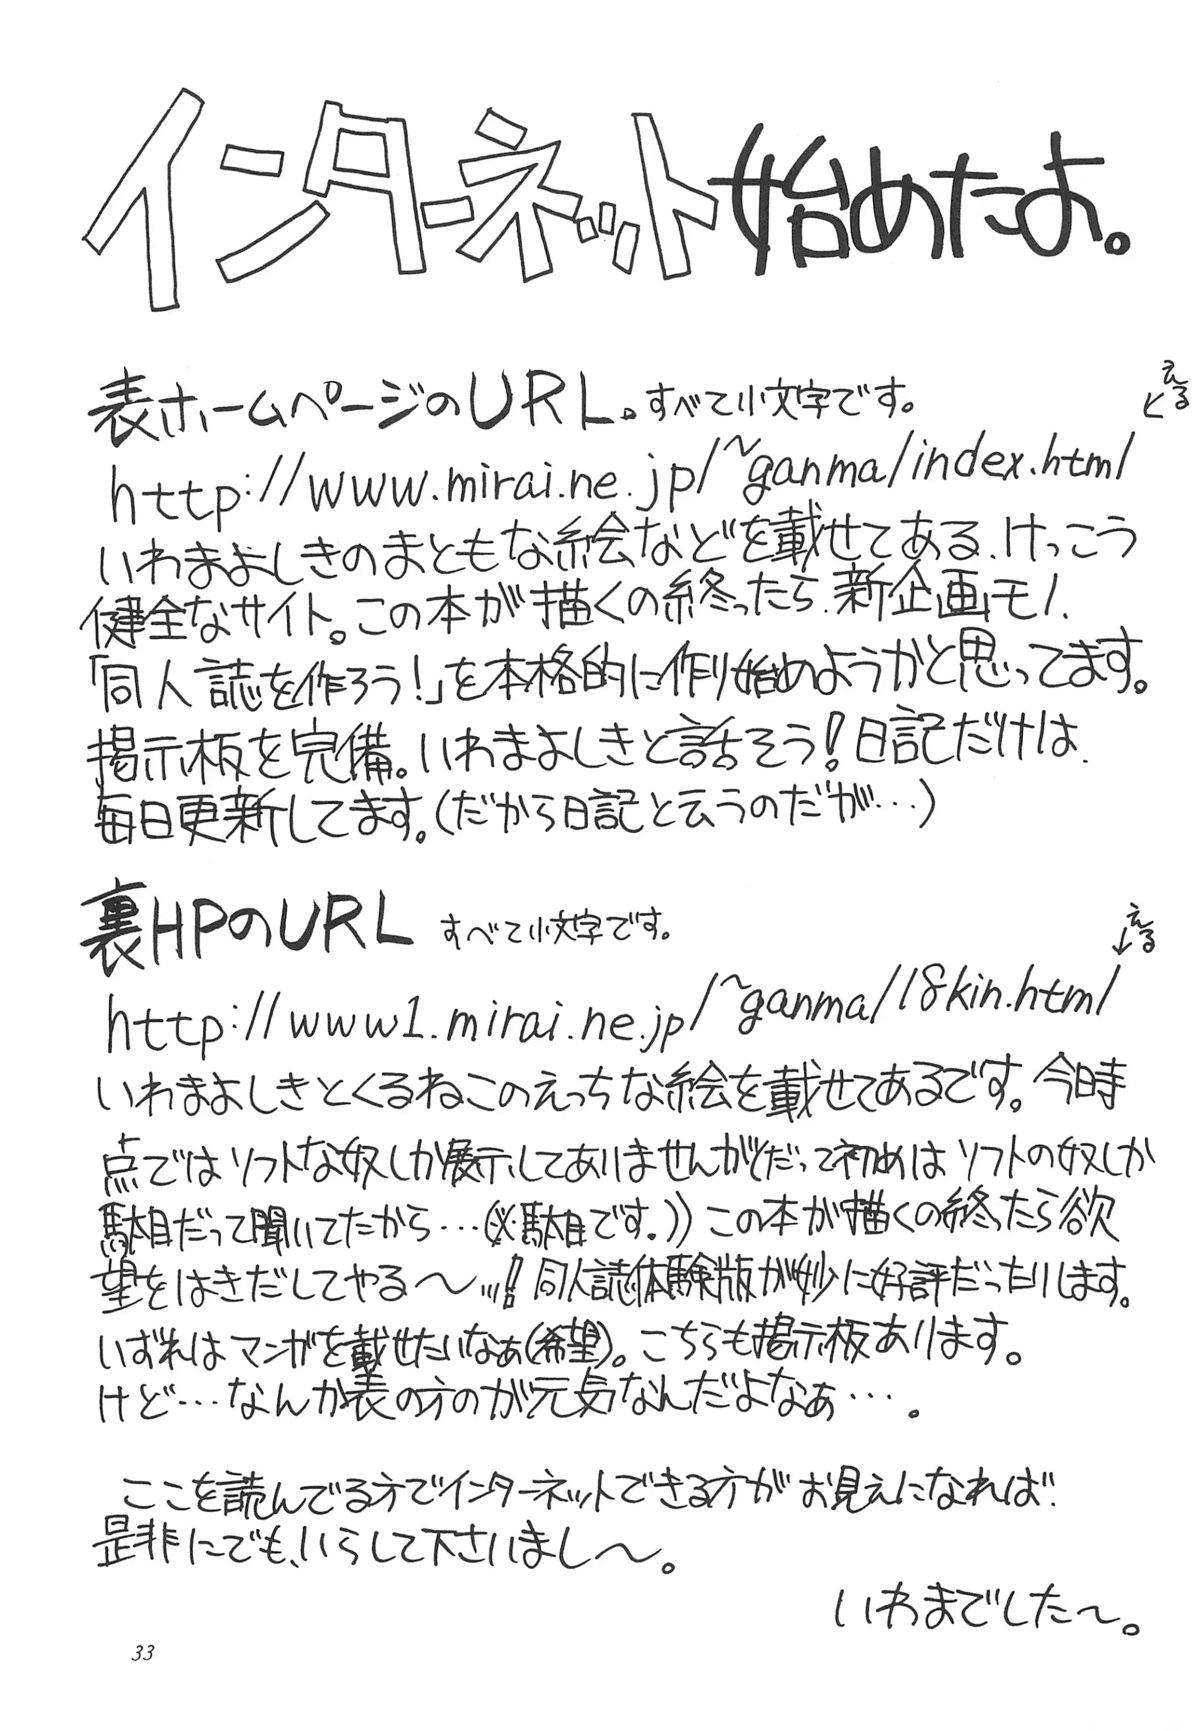 インターネット始めたよ。
表ホームページのURL。すべて小文字です。
える
http://www.mirai.ne.jp/~ganma/index.html
いわまよしきのまともな絵などを載せてある、けっこう
健全なサイト。この本が描くの終ったら、新企画モノ、
「同人誌を作ろう!」を本格的に作り始めようかと思ってます。
掲示板を完備。いわまよしきと話そう!日記だけは、
毎日更新してます。(だから日記と云うのだが…)
裏HPのURL すべて小文字です。
える
http://www1.mirai.ne.jp/~ganma/18kin.html
いわまよしきとくるねこのえっちな絵を載せてあるです。今時
点ではソフトな奴しか展示してありませんが(だって初めはソフトの奴しか
駄目だって聞いてたから…(※駄目です。))この本が描くの終ったら欲
望をはきだしてやる〜!!!同人誌体験版が妙に好評だったりします。
いずれはマンガを載せたいなぁ(希望)。こちらも掲示板あります。
けど…なんか表の方のが元気なんだよなぁ…。
ここを読んでる方でインターネットできる方がお見えになれば、
是非にでも、いらして下さいまし〜。
いわまでした〜。
33